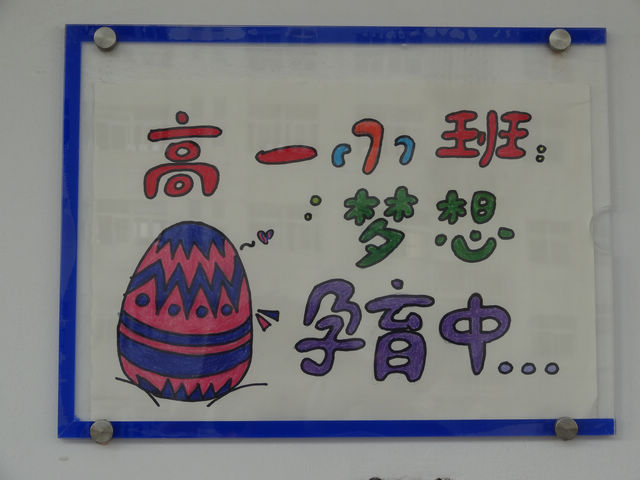 高一(7)班:
梦想
孕育中...